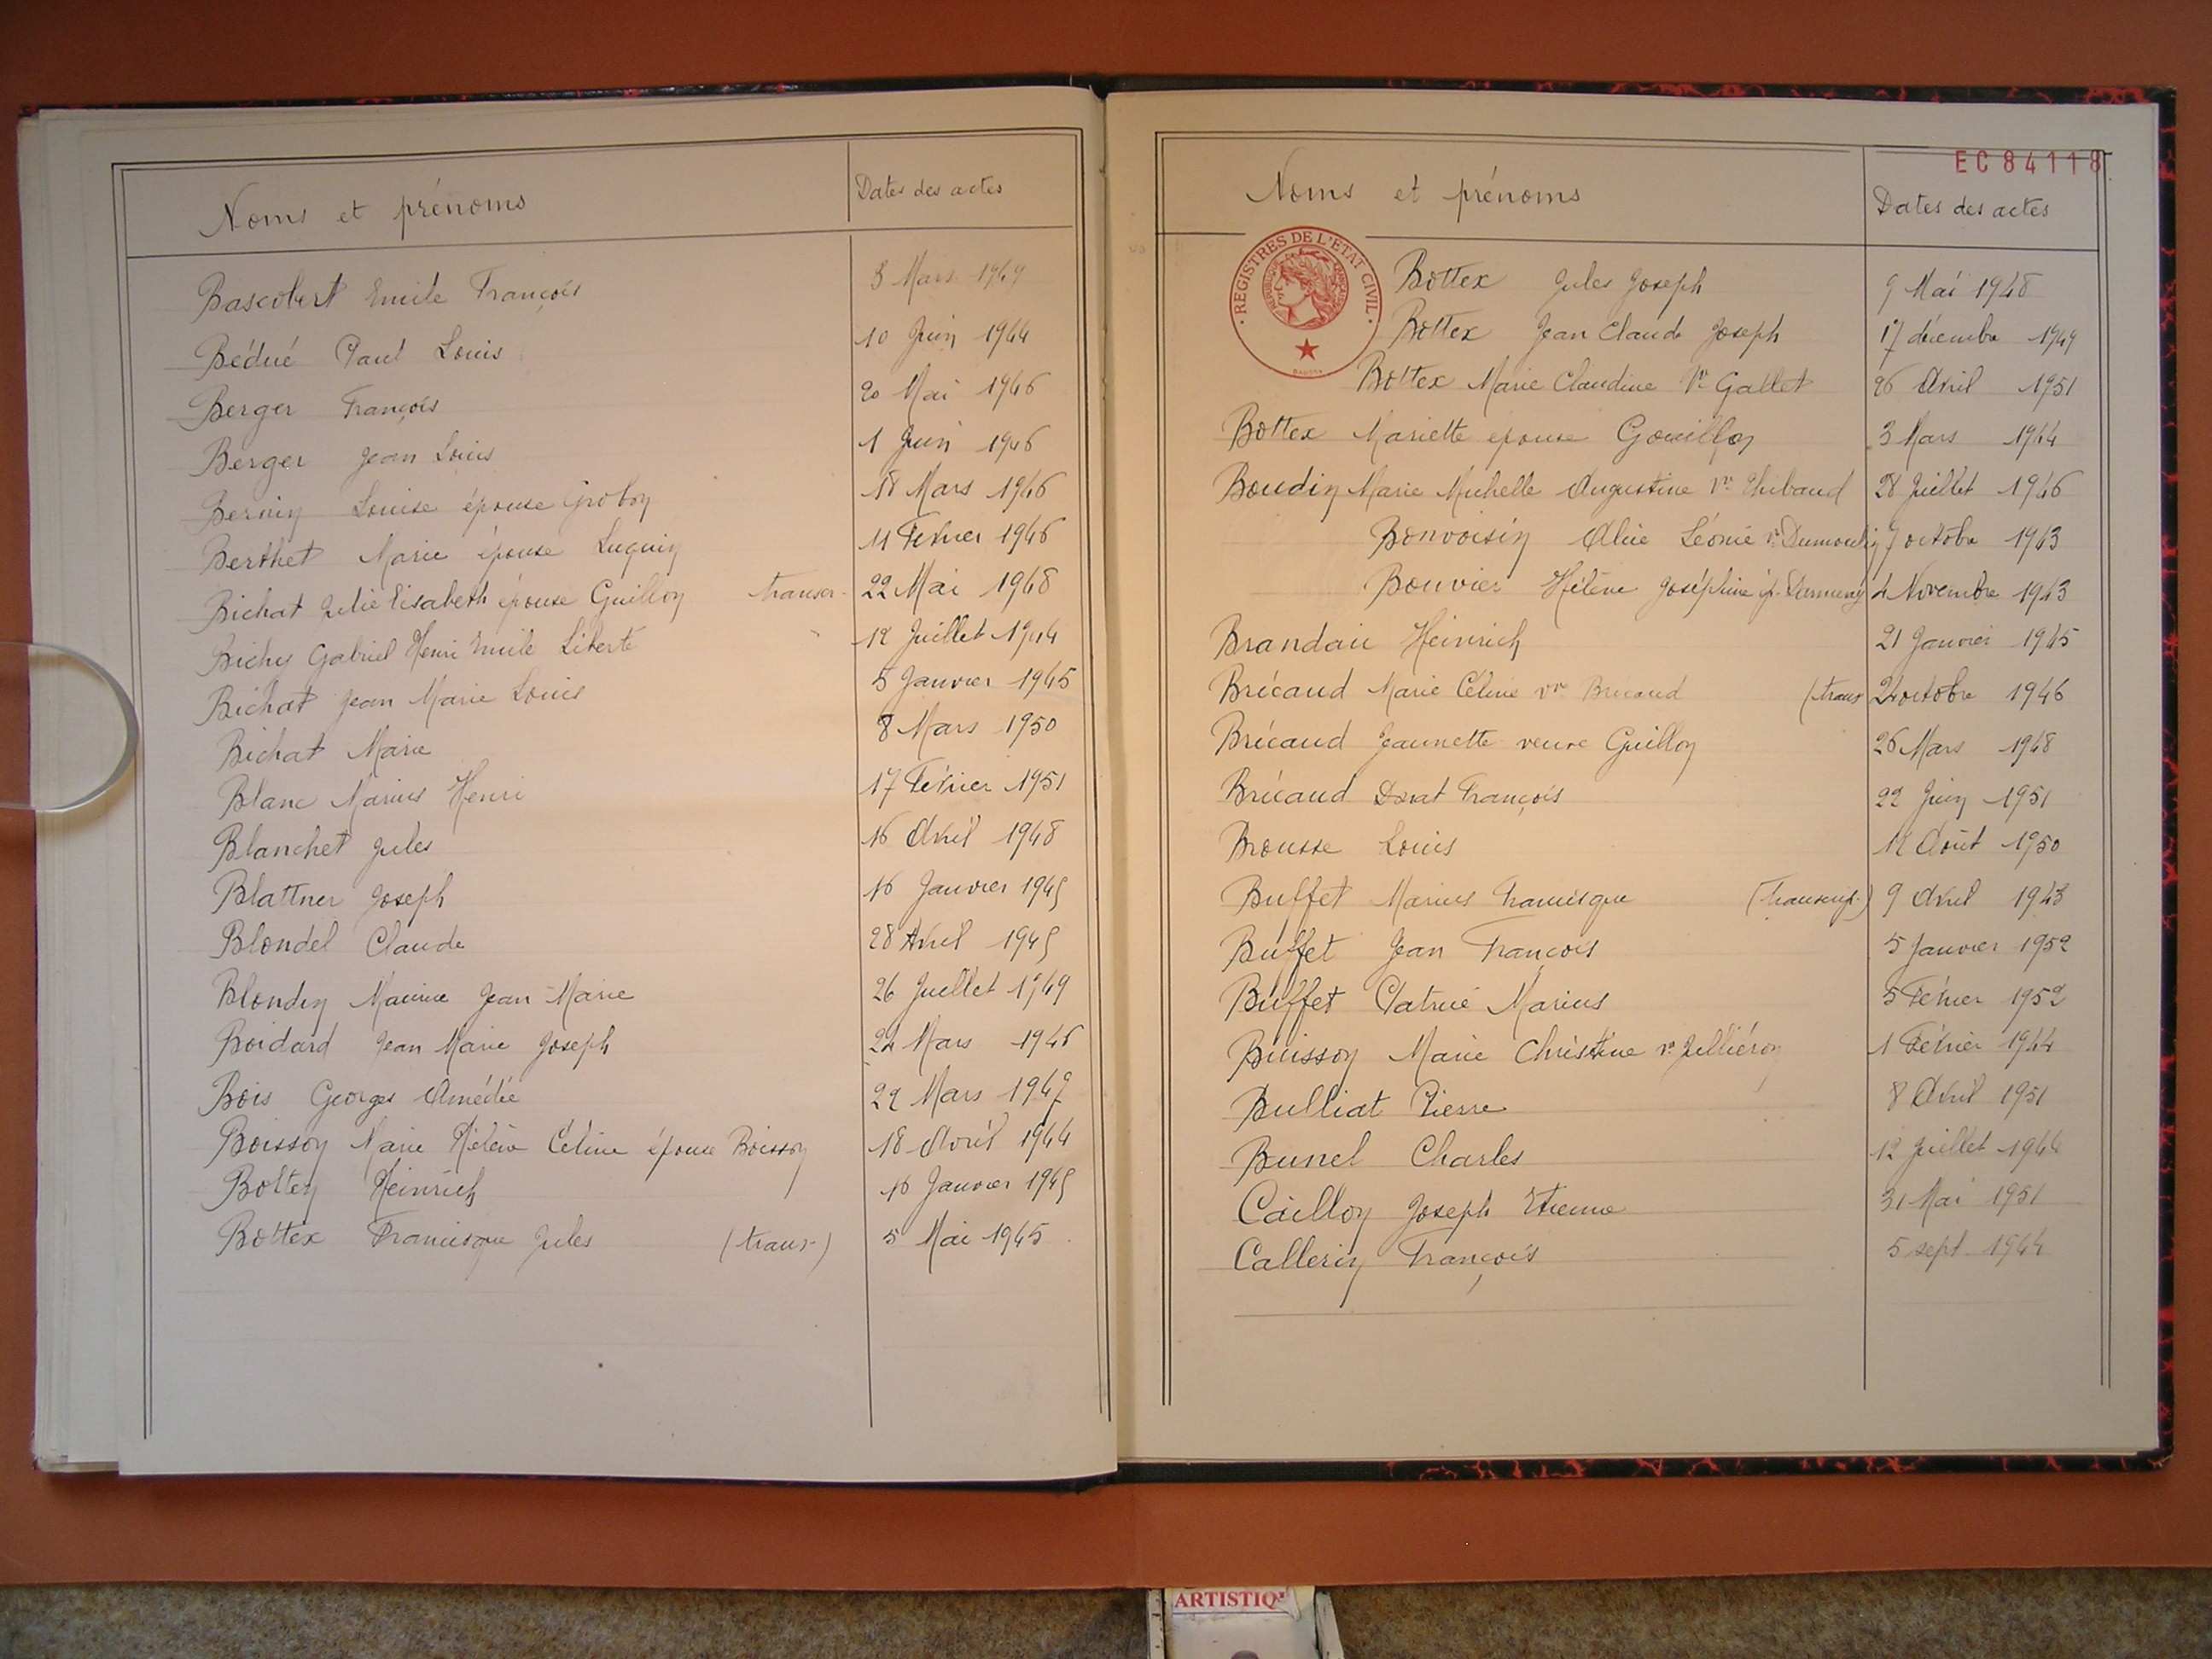 Noms et prénoms Dates des actes
Bascobert Emile François 3 Mars 1949
Bédué Paul Louis 10 Juin 1944
Berger François 20 Mai 1946
Berger Jean Louis 1 Juin 1946
Bernin Louise épouse Grobon 18 Mars 1946
Berthet Marie épouse Luquin 11 Février 1946
Bichat Julie Elisabeth épouse Guillon transcr. 22 Mai 1948
Bichy Gabriel Henri Emile Liberté 12 Juillet 1944
Bichat Jean Marie Louis 5 Janvier 1945
Bichat Marie 8 Mars 1950
Blanc Marius Henri 17 Février 1951
Blanchet Jules 16 Avril 1948
Blattner Joseph 16 Janvier 1945
Blondel Claude 28 Avril 1945
Blondin Maurice Jean-Marie 26 Juillet 1949
Boidard Jean Marie Joseph 24 Mars 1946
Bois Georges Amédée 22 Mars 1947
Boisson Marie Hélène Céline épouse Boisson 18 Avril 1944
Bolten Heinrich 16 Janvier 1945
Bottex Francisque Jules (trans.) 5 Mai 1945
EC84118
Noms et prénoms Dates des actes
REGISTRES DE L'ETAT CIVIL
Bottex Jules Joseph 9 Mai 1948
Bottex Jean Claude Joseph 17 décembre 1949
Bottex Marie Claudine Vve Gallet 26 Avril 1951
Bottex Mariette épouse Gouillon 3 Mars 1944
Boudin Marie Michelle Augustine Vve Thibaud 28 Juillet 1946
Bonvoisin Alice Léonie ve Dumoulin 7 octobre 1943
Bouvier Hélène Joséphine ép. 4 Novembre 1943
Brandau Heinrich 21 Janvier 1945
Bricaud Marie Céline vve Bricaud (trans 24 octobre 1946
Bricaud Jeannette veuve Guillon 26 Mars 1948
Bricaud Donat François 22 Juin 1951
Brousse Louis 12 Août 1950
Buffet Marius Francisque (Transcrip.) 9 Avril 1943
Buffet Jean François 5 Janvier 1952
Buffet Patrice Marius 5 Février 1952
Buisson Marie Christine ve Julliéron 1 Février 1944
Bulliat Pierre 8 Avril 1951
Bunel Charles 12 Juillet 1944
Caillon Joseph Etienne 31 Mai 1951
Callerin François 5 sept 1944
ARTISTIQ